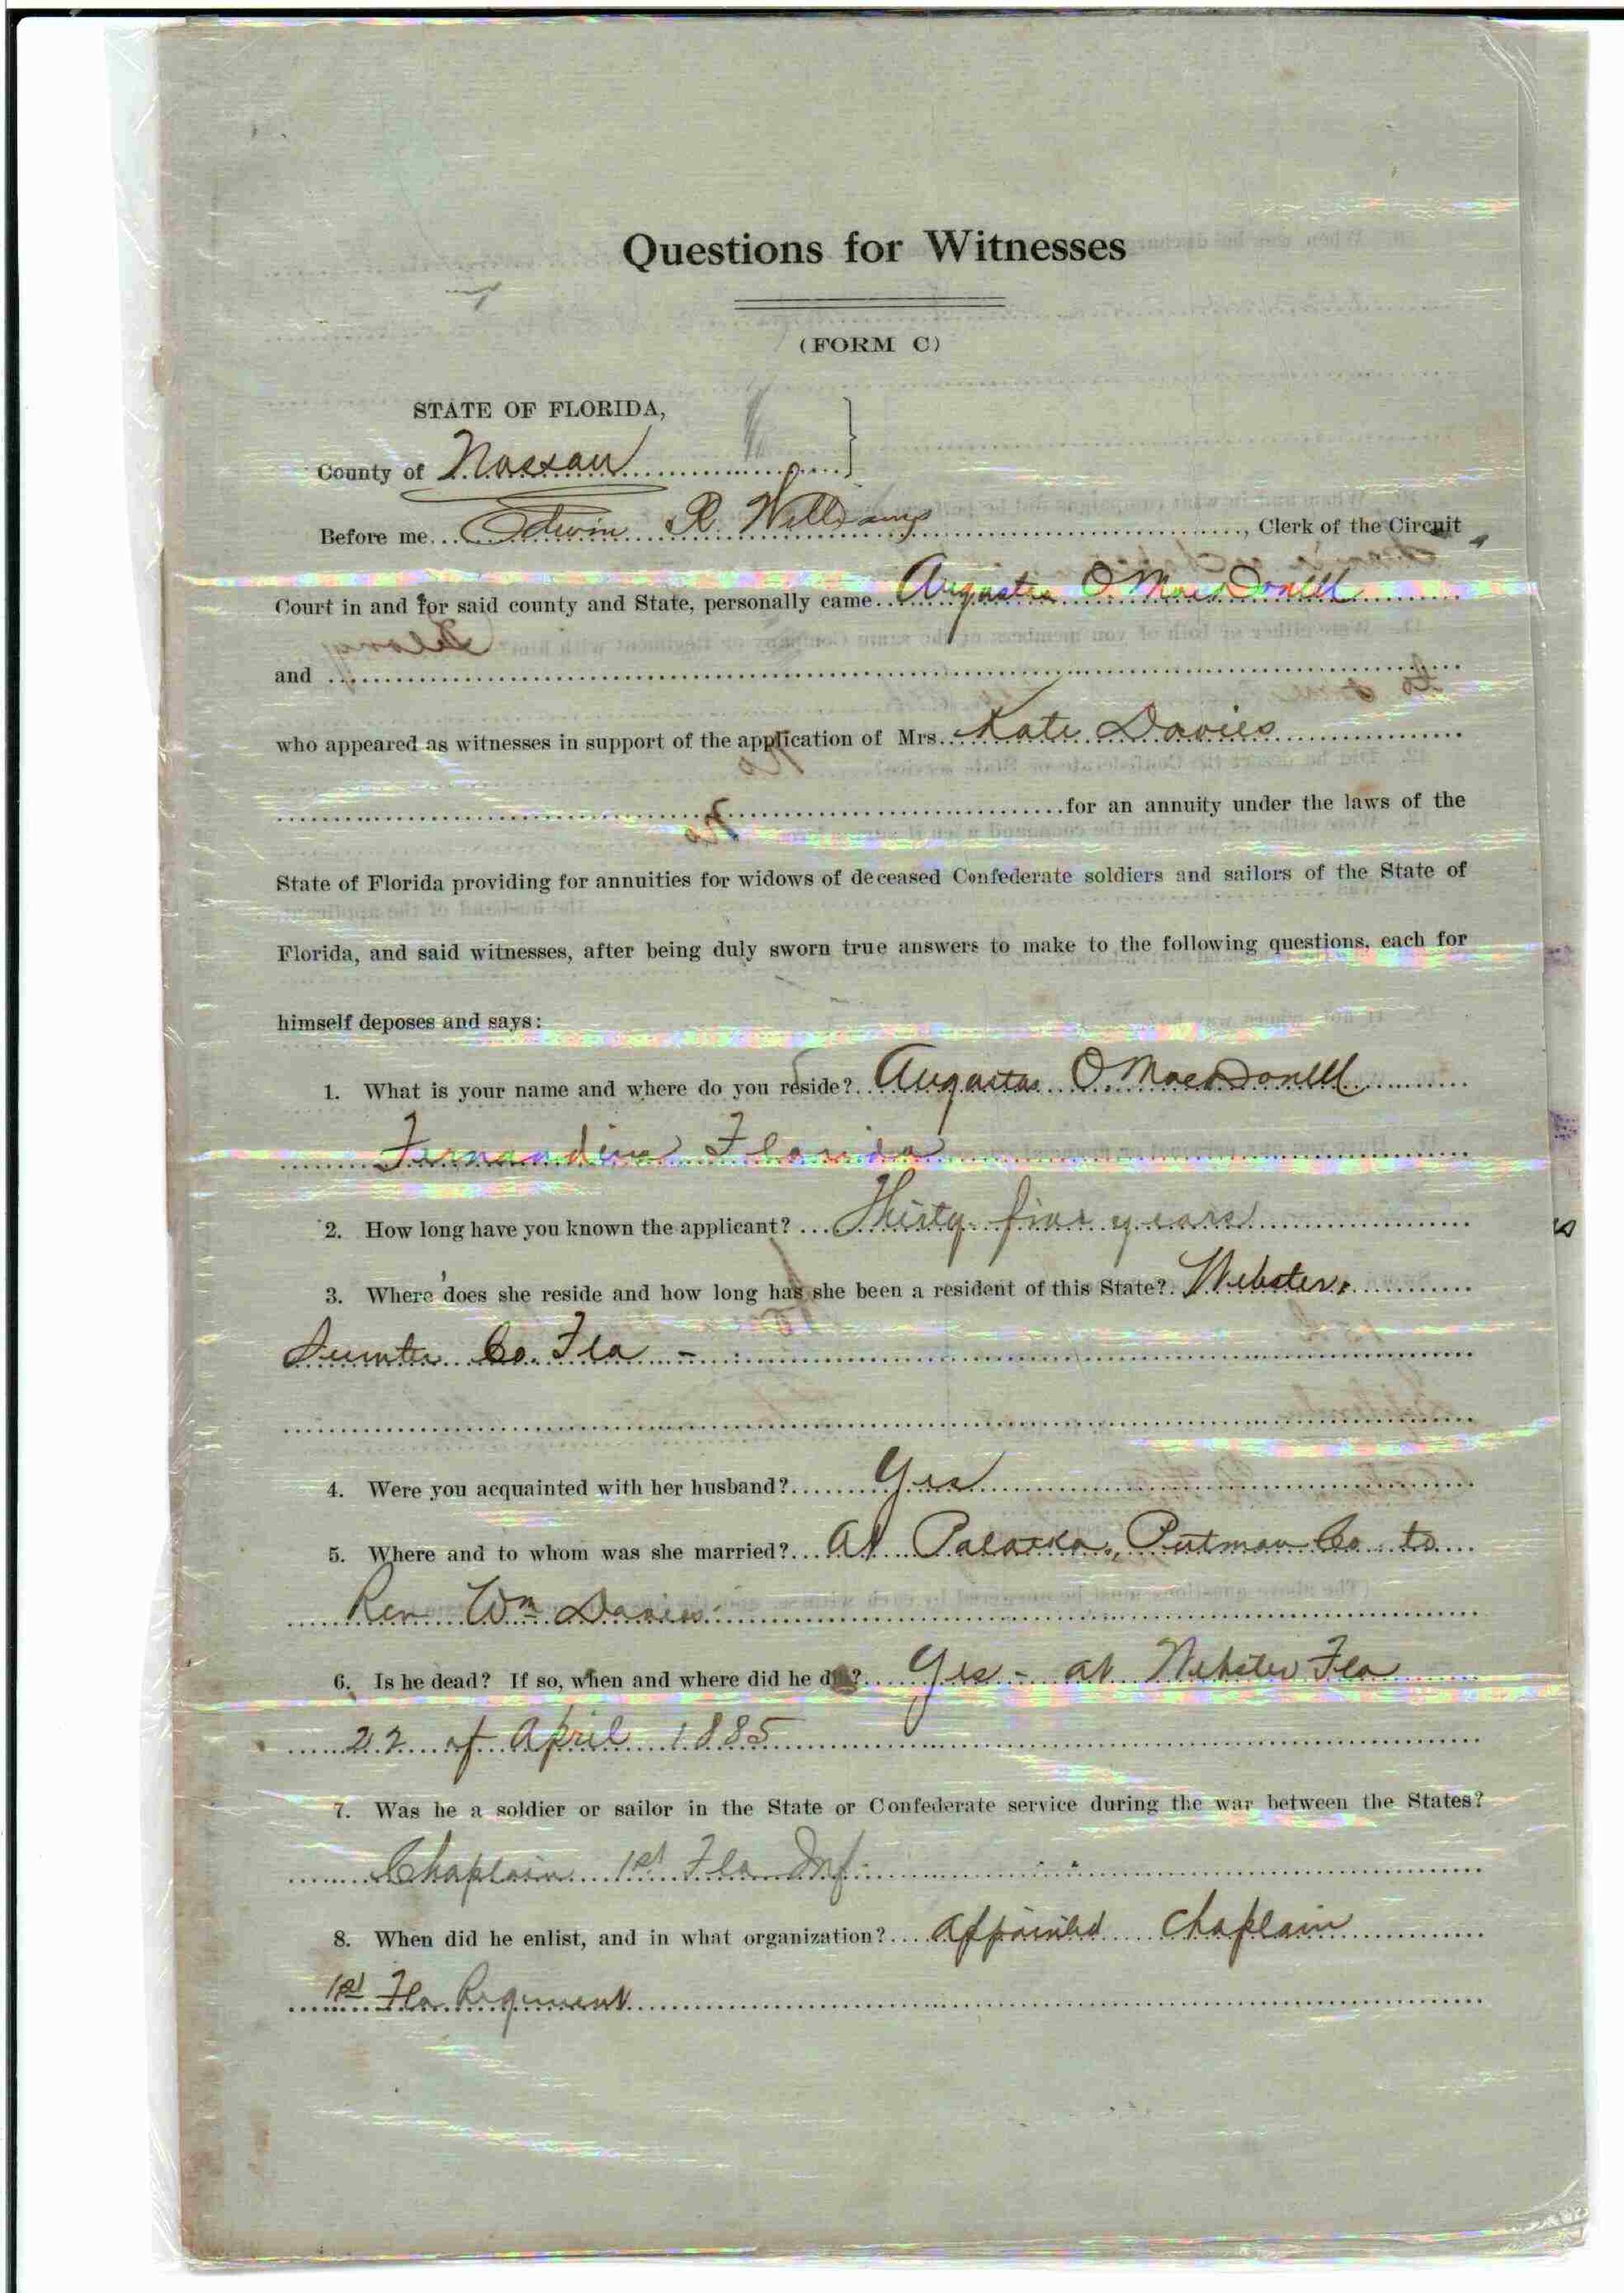 Questions for Witnesses
(FORM C)
STATE OF FLORIDA,
County of Nassau
Before me Edwin R. Williams, Clerk of the Circuit
Court in and for said county and State, personally came Augustus O. MacDonell
and
who appeared as witnesses in support of the application of Mrs. Kate Davies
for an annuity under the laws of the
State of Florida providing for annuities for widows of deceased Confederate soldiers and sailors of the State of
Florida, and said witnesses, after being duly sworn true answers to make to the following questions, each for
himself deposes and says:
1. What is your name and where do you reside? Augustus O. MacDonell
Fernandina Florida
2. How long have you known the applicant? Thirty five years
3. Where does she reside and how long has she been a resident of this State? Webster,
Sumter Co. Fla -
4. Were you acquainted with her husband? Yes
5. Where and to whom was she married? At Palatka, Putman Co to
Rev Wm Davies
6. Is he dead? If so, when and where did he die? Yes - at Webster Fla
22 of April 1885
7. Was he a soldier or sailor in the State or Confederate service during the war between the States?
Chaplain 1st Fla Inf.
8. When did he enlist, and in what organization? Appointed Chaplain
1st Fla Regiment